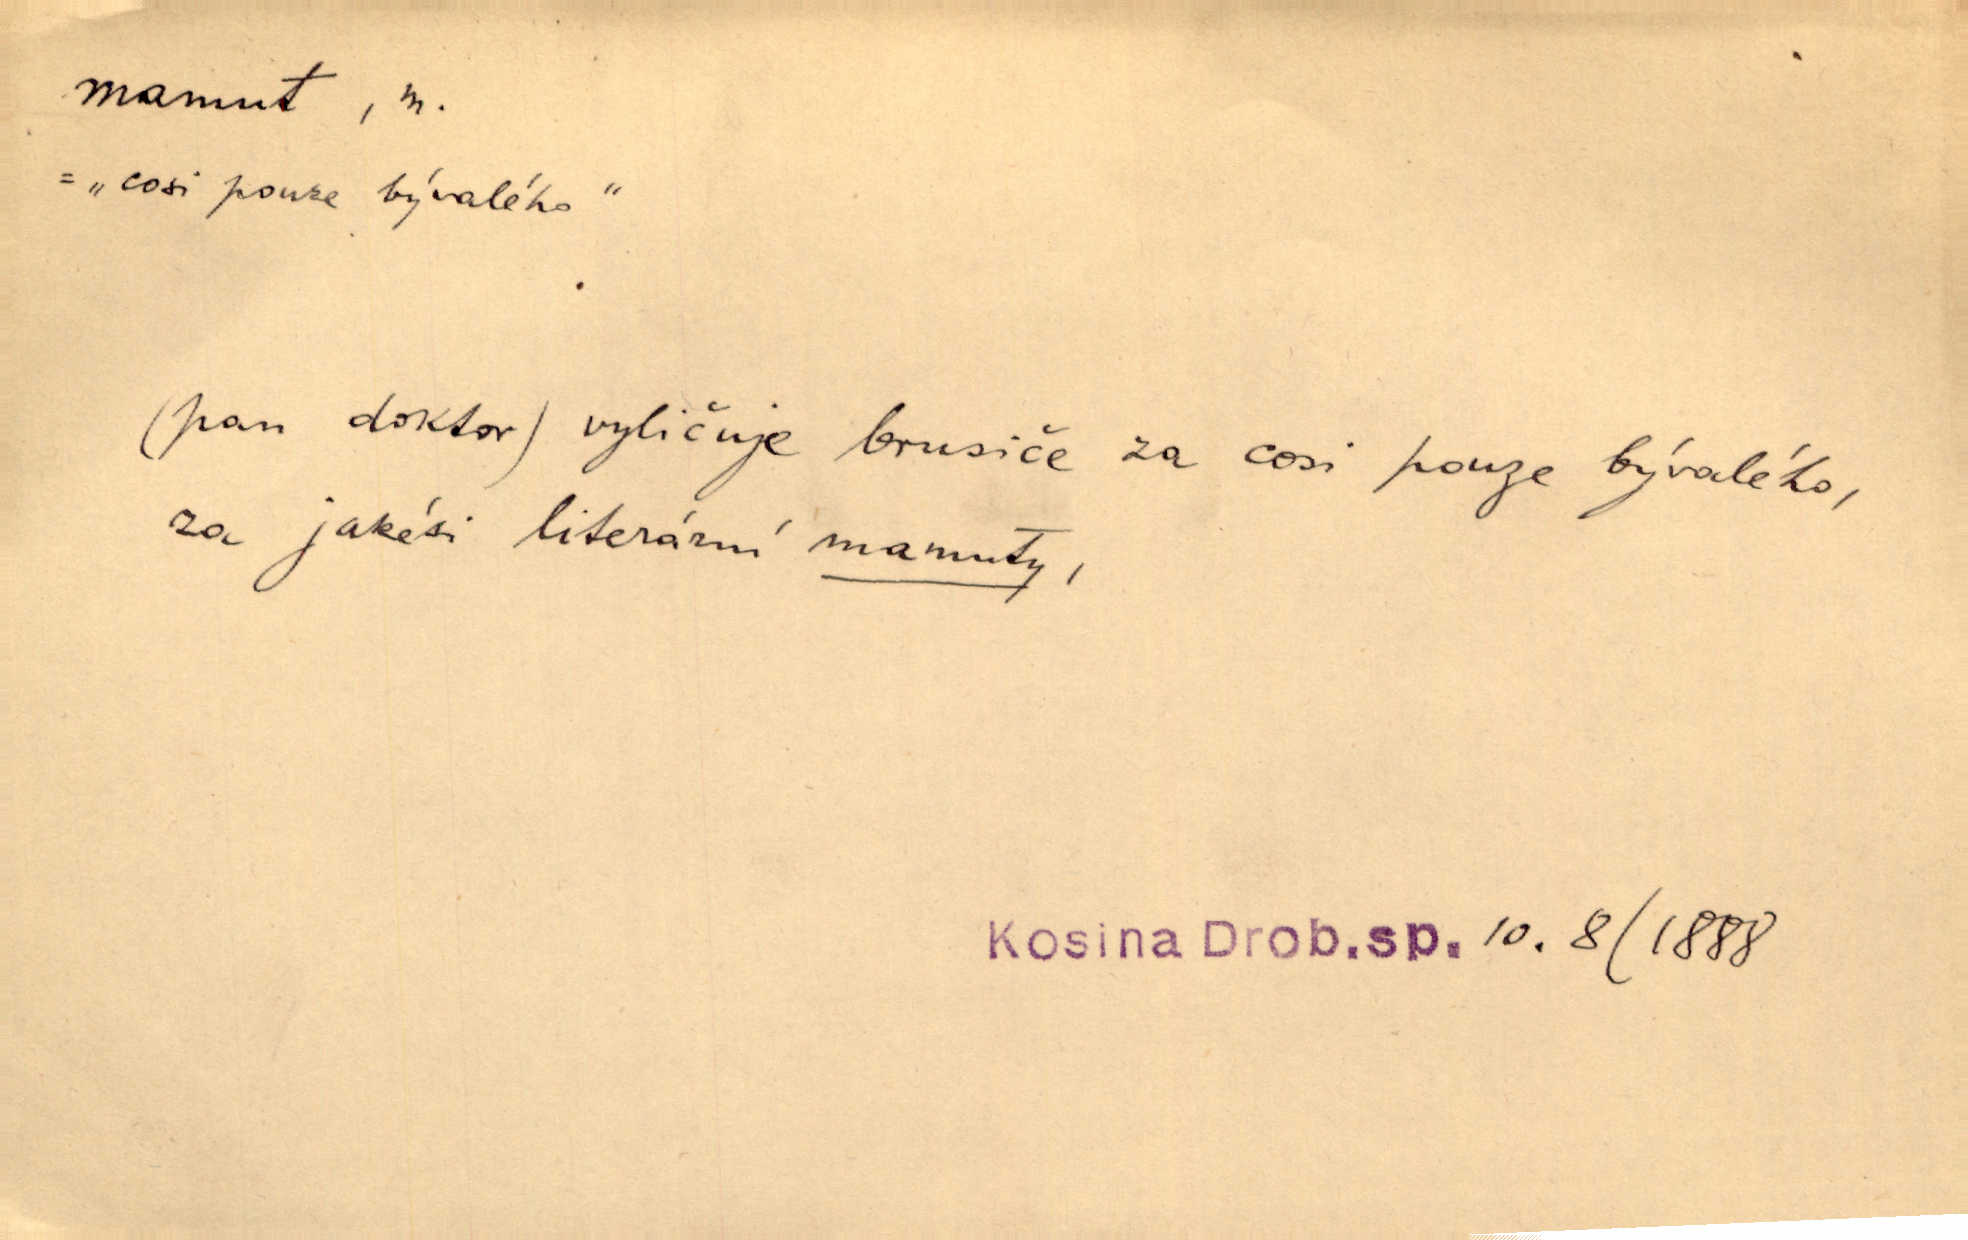 mamut, m.
= „cosi pouze bývalého"
(pan doktor) vyličuje brusiče za cosi pouze bývalého,
za jakési literární mamuty,
Kosina Drob.sp. 10. 8/1888